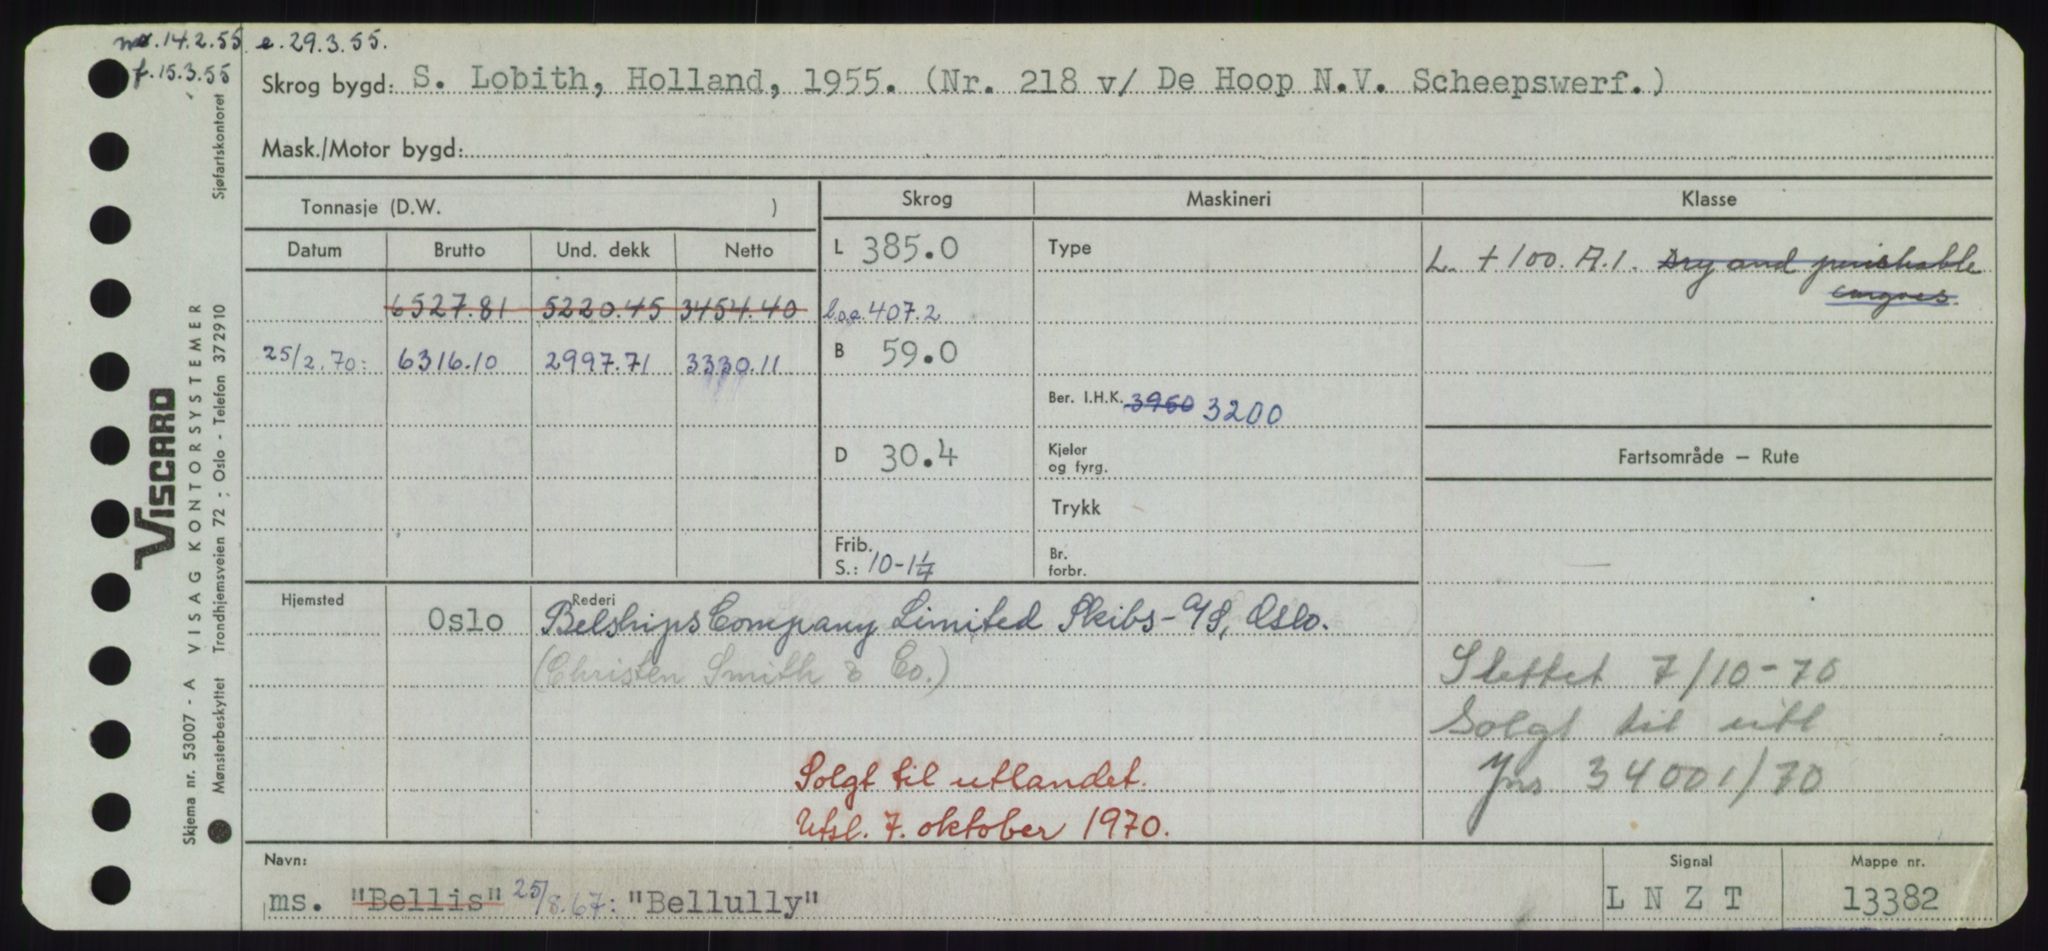 mø. 14.2.55 e. 29.3.55.
f. 15.3.55
Skrog bygd: S. Lobith, Holland, 1955. (Nr. 218 v/ De Hoop N.V. Scheepswerf.)
Mask./Motor bygd:
Tonnasje (D.W. )
Skrog
Maskineri
Klasse
Datum Brutto Und. dekk Netto
L 385.0
Type
L. + 100. A.1. Dry and perishable
cargoes.
6527.81 5220.45 3454.40
l.o.a. 407.2
25/2.70: 6316.10 2997.71 3330.11
B 59.0
Ber. I.H.K. 3960 3200
D 30.4
Kjeler
og fyrg.
Fartsområde – Rute
Trykk
Frib.
S.: 10-1¼
Br.
forbr.
Hjemsted
Rederi
Oslo
Belships Company Limited Skibs-A/S, Oslo.
(Christen Smith & Co.)
Slettet 7/10-70
Solgt til utl
Jns 34001/70
Solgt til utlandet.
Utsl. 7. oktober 1970.
Navn:
Signal
Mappe nr.
ms. "Bellis" 25/8.67: "Bellully"
L N Z T
13382
Viscard
VISAG KONTORSYSTEMER
Skjema nr. 53007 - A
Mønsterbeskyttet Trondhjemsveien 72 ; Oslo - Telefon 372910
Sjøfartskontoret